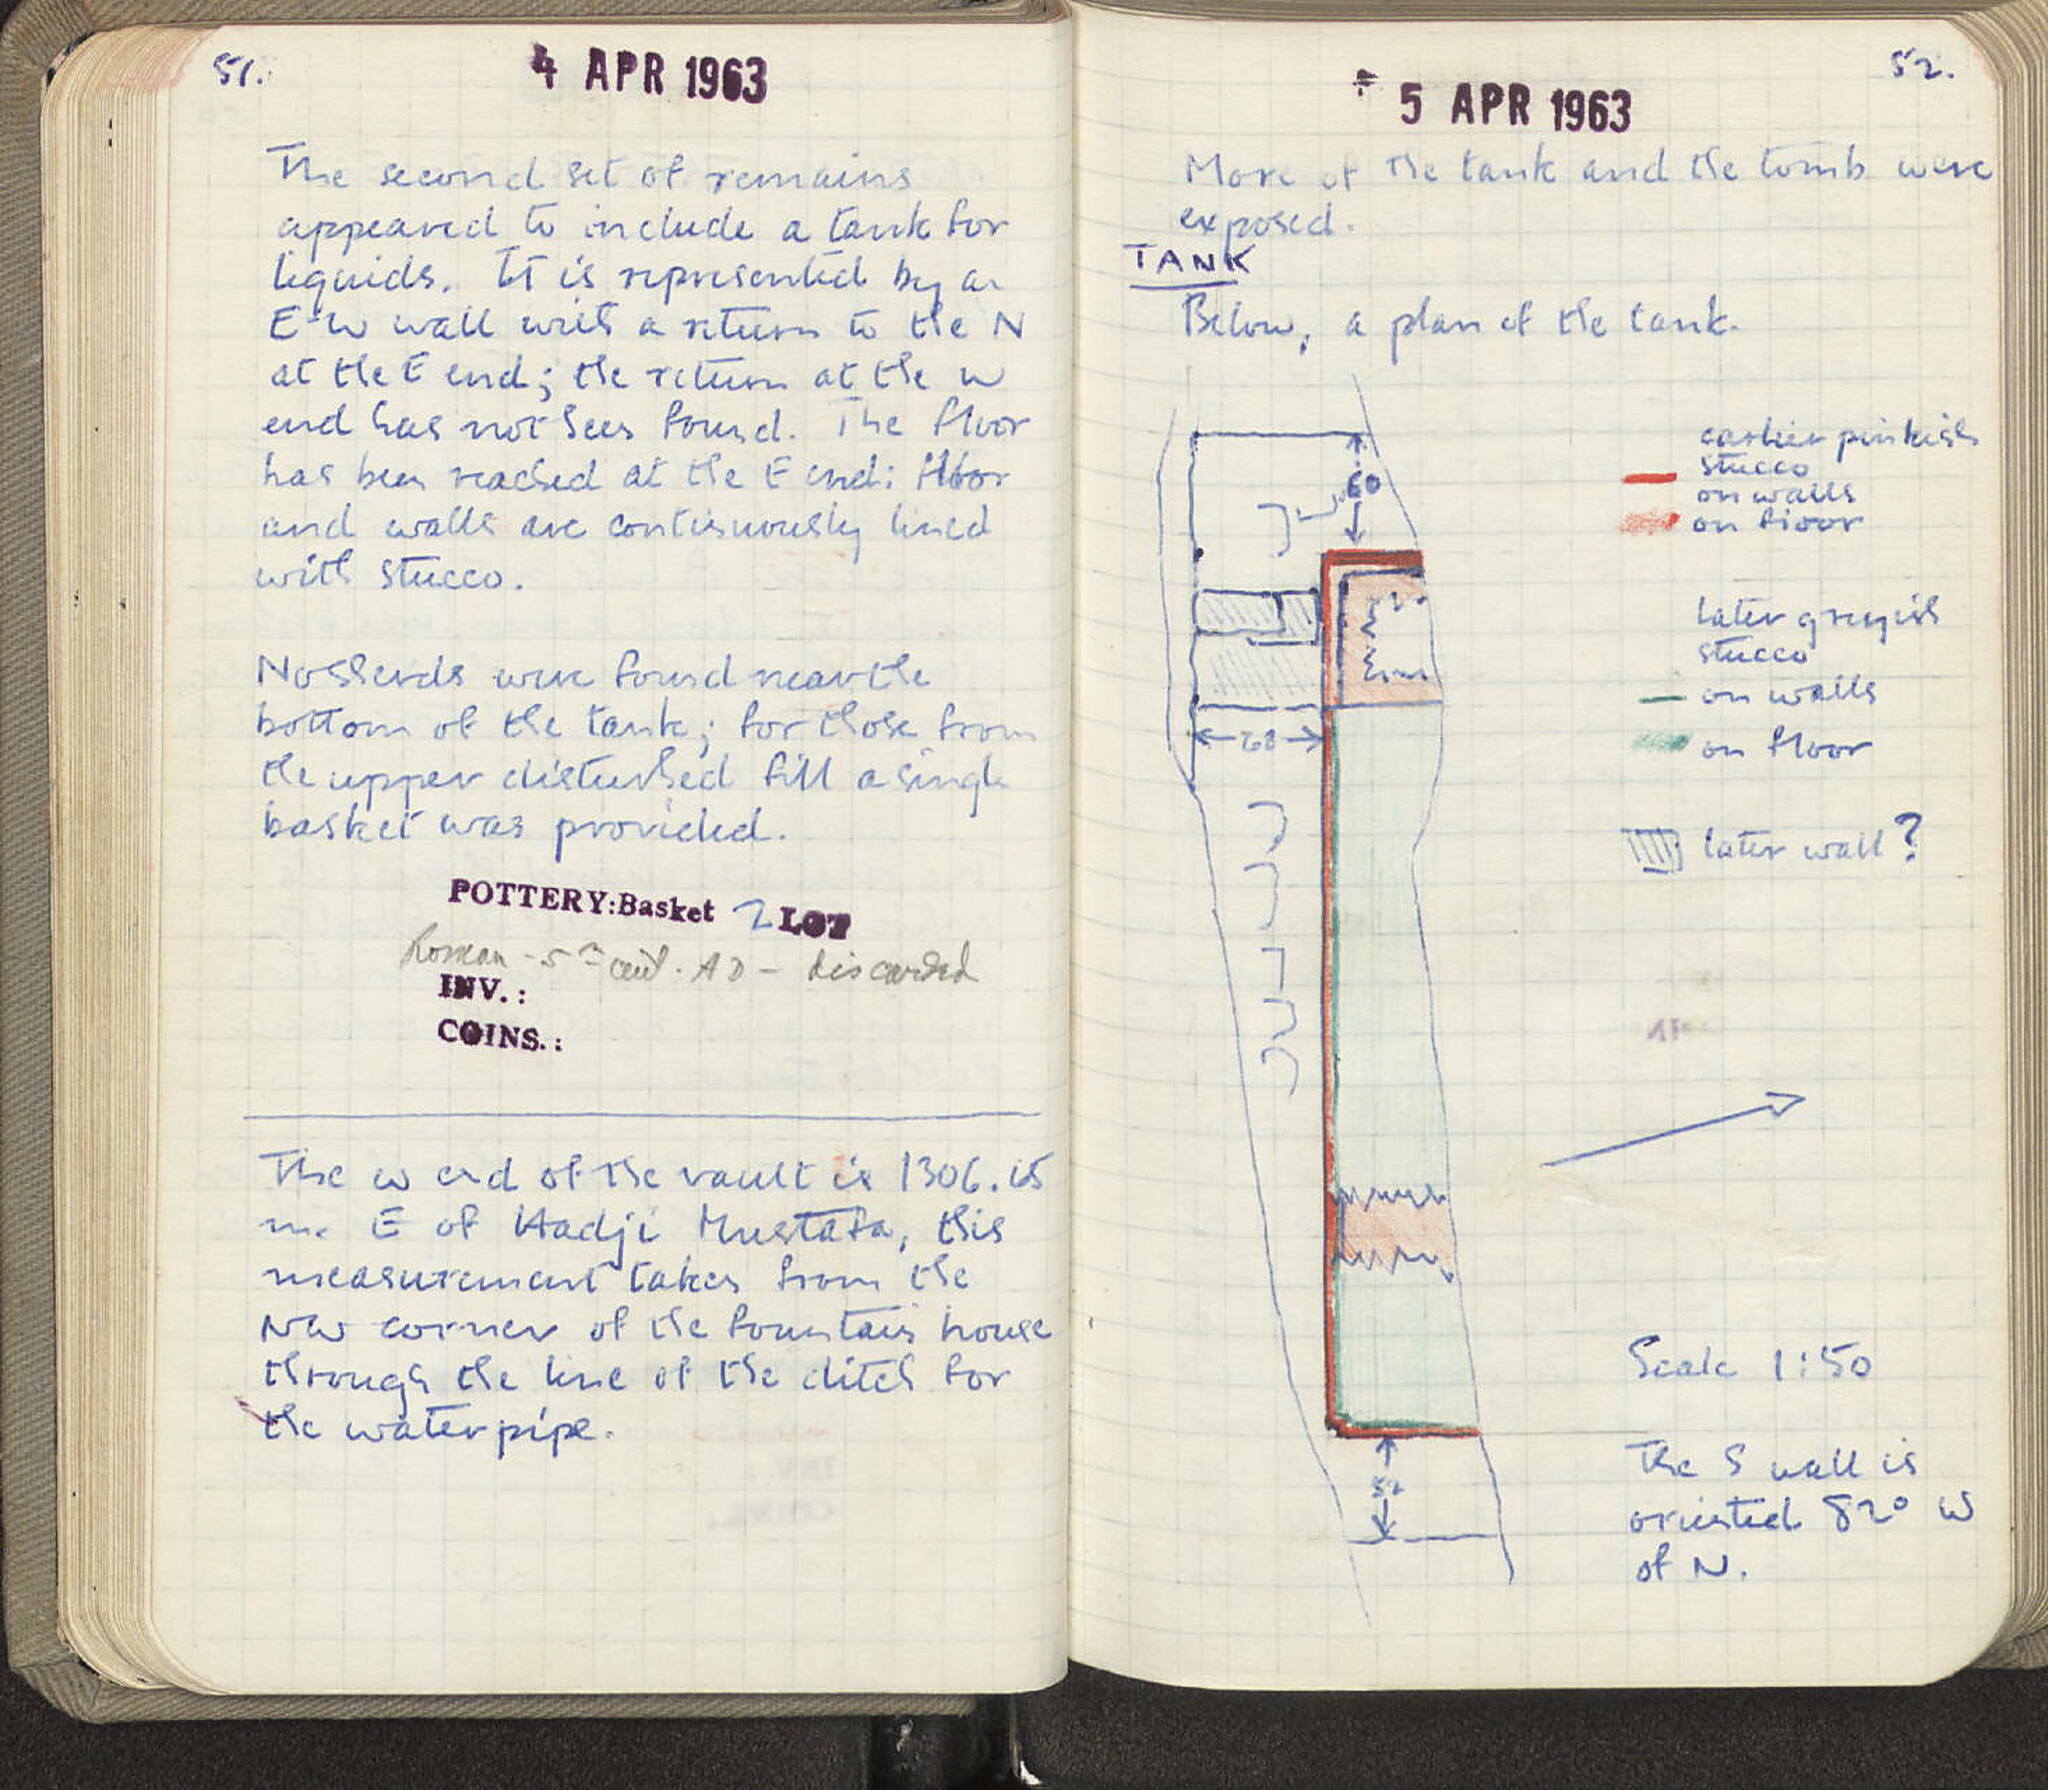 51.
4 APR 1963
The second set of remains
appeared to include a tank for
liquids. It is represented by an
E-W wall with a return to the N
at the E end; the return at the W
end has not been found. The floor
has been reached at the E end: floor
and walls are continuously lined
with stucco.
No sherds were found near the
bottom of the tank; for those from
the upper disturbed fill a single
basket was provided.
POTTERY: Basket 2 LOT
Roman - 5th cent. AD - discarded
INV.:
COINS.:
The W end of the vault is 1306.65
m. E of Hadji Mustafa, this
measurement taken from the
NW corner of the fountain house
through the line of the ditch for
the water pipe.
52.
5 APR 1963
More of the tank and the tomb were
exposed.
TANK
Below, a plan of the tank.
earlier pinkish
stucco
on walls
on floor
later greyish
stucco
on walls
on floor
later wall?
60
68
52
Scale 1:50
The S wall is
oriented 82° W
of N.